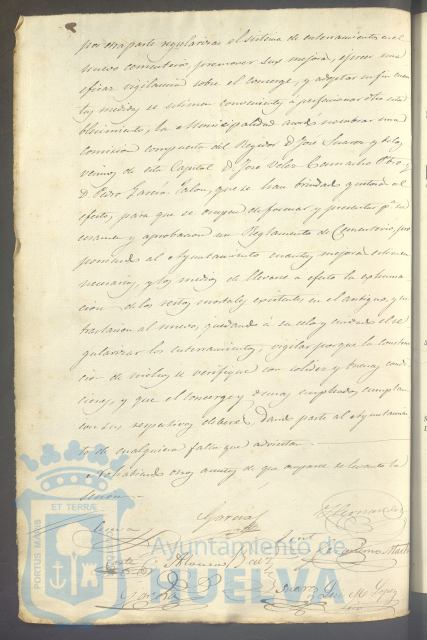 por otra parte regularizar el sistema de enterramientos en el
nuevo cementerio, promover sus mejoras, ejercer una
eficaz vigilancia sobre el conserge, y adoptar en fin cuan
tas medidas se estimen convenientes á perfeccionar dho esta
blecimiento, la Municipalidad acordó nombrar una
Comision compuesta del Regidor D. José Suarez y de los
vecinos de esta Capital D. José Velez Camacho Pbro. y
D. Pedro Garcia Jalon, que se han brindado gustosos al
efecto, para que se ocupen de formar y presentar pa. su
exámen y aprobacion un Reglamento de Cementerio, pro
poniendo al Ayuntamiento cuantas mejoras estimen
necesarias, y los medios de llevarse á efecto la exhuma
cion de los restos mortales existentes en el antiguo, y su
traslacion al nuevo, quedando á su celo y cuidado el re
gularizar los enterramientos, vigilar porque la construc
cion de nichos se verifique con solidez y buenas condi
ciones, y que el conserge y demas empleados cumplan
con sus respectivos deberes, dando parte al Ayuntamien
to de cualquiera falta que adviertan.
No habiendo otros asuntos de que ocuparse se levantó la
sesion.
Garcia
Hernandez
Alonso
Garcia
Suarez
M. Lopez
PORTUS MARIS
ET TERRAE
Ayuntamiento de
HUELVA